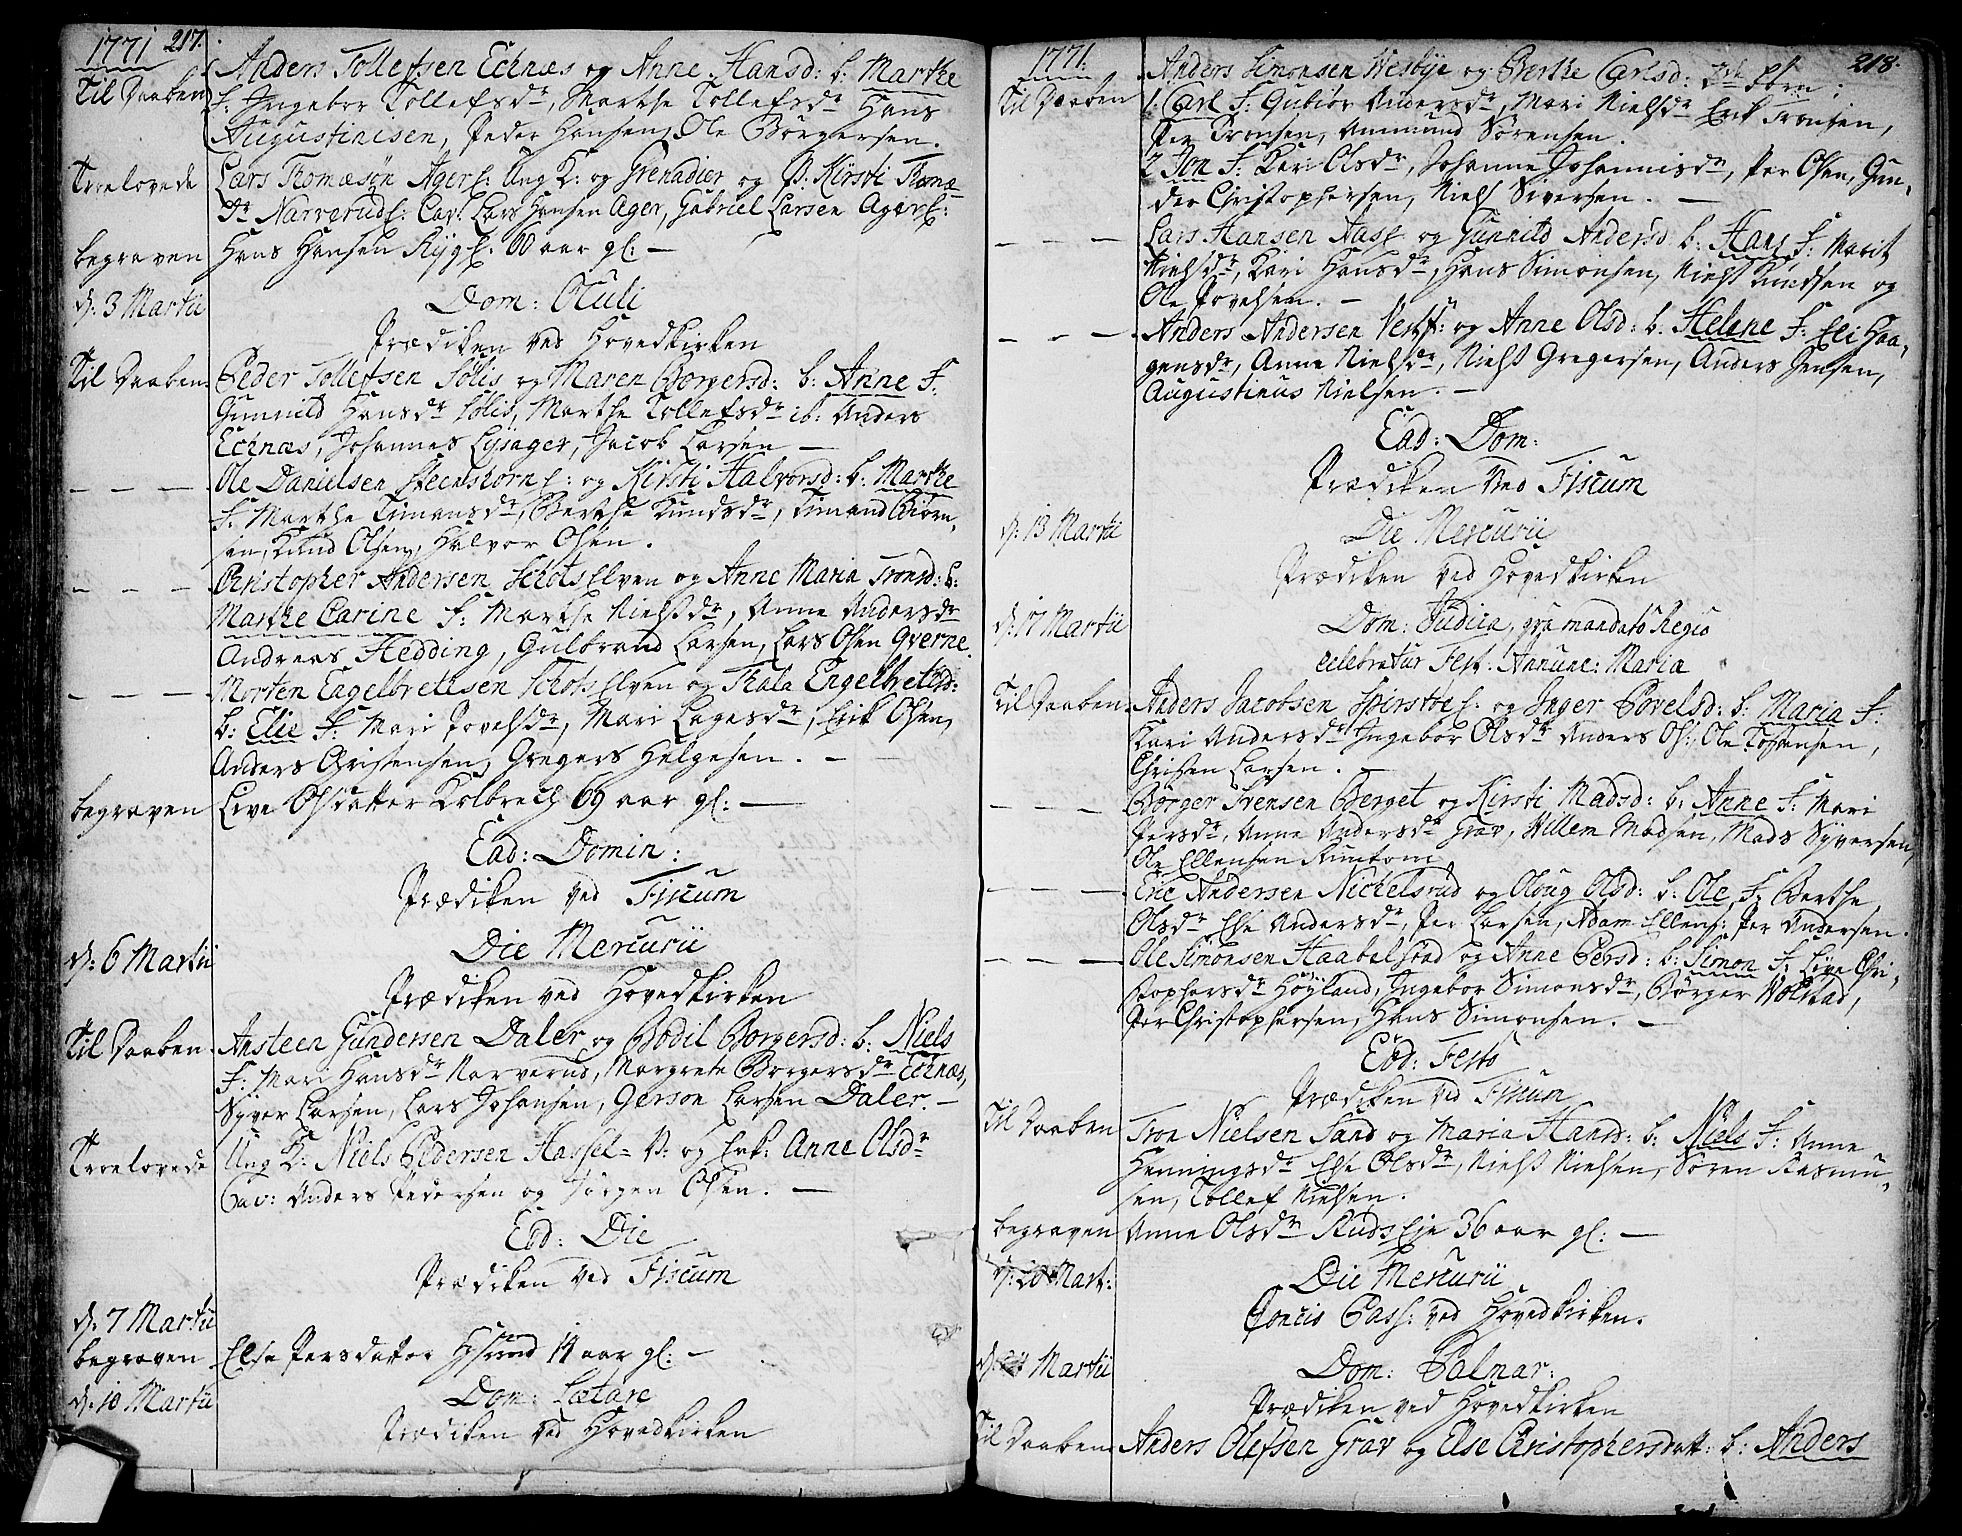 1771 217.
Til Daaben Anders Tollefsen Ecknæs og Anne Hansd: b: Marthe
F: Ingebor Tollefsdr, Marthe Tollefsdr Hans
Augustinisen, Peder Hansen, Ole Borgersen.
Troelovede Lars Thomæsøn Agers: Ung K: og Grenadier og P: Kirsti Thomæ
dr Narverud: Cav: Lars Hansen Ager, Gabriel Larsen Ager:
begraven Hans Hansen Ryg: 60 aar gl: —
d: 3 Martii Dom: Oculi
Prædiken ved Hovedkirken
Til Daaben Peder Tollefsen Sølis og Maren Borgersd: b: Anne F:
Gunnild Hansdr Sølis, Marthe Tollefsdr ib: Anders
Ecknæs, Johannes Lysager, Jacob Larsen —
— — — Ole Danielsen Steenshorn: og Kirsti Halvorsd: b: Marthe
F: Marthe Timansdr, Berthe Knudsdr, Timand Biørn-
sen, Knud Olsen, Halvor Olsen.
— — — Christopher Andersen Schotselven og Anne Maria Tronsd: b:
Marthe Carine F: Marthe Nielsdr, Anne Andersdr
Andreas Hedding, Gulbrand Larsen, Lars Olsen Qverne.
— — — Morten Engelbretsen Schotselven og Thala Engelbretsd:
b: Elie F: Mari Povelsdr, Mari Lagesdr, Erik Olsen,
Anders Christensen, Gregers Helgesen. —
begraven Live Olsdatter Kolbræch 69 aar gl: —
Ead: Domin:
Prædiken ved Fiscum
d: 6 Martii Die Mercurii
Prædiken ved Hovedkirken
Til Daaben Ansteen Gundersen Daler og Bodil Borgersd: b: Niels
F: Mari Hansdr Narverud, Margrete Borgersdr Ecknæs,
Syver Larsen, Lars Johansen, Gerson Larsen Daler. —
Troelovede Ung K: Niels Pedersen Hassel= P: og Enk: Anne Olsdr
Cav: Anders Pedersen og Jörgen Olsen. —
Eod: Die
Prædiken ved Fiscum
d: 7 Martii
begraven Else Persdatter 14 aar gl: —
d: 10 Martii Dom: Lætare
Prædiken ved Hovedkirken
1771. 218.
Til Daaben Anders Simonsen Wesbye og Berthe Carlsd:
1. Carl F: Gubiør Andersdr, Mari Nielsdr Erik Tronsen,
Per Tronsen, Ammund Sørensen.
2 Jon F: Kari Olsdr, Johanne Johannisdr, Per Olsen, Gun-
der Christophersen, Niels Siversen. —
— — — Lars Hansen Aas: og Gunnild Andersd: b: Hans F: Marit
Nielsdr, Kari Hansdr, Hans Simonsen, Niels Knudsen og
Ole Povelsen. —
— — — Anders Andersen Vestf: og Anne Olsd: b: Helene F: Eli Haa-
gensdr, Anne Nielsdr, Niels Gregersen, Anders Jensen,
Augustinus Nielsen. —
Ead: Dom:
Prædiken ved Fiscum
d: 13 Martii Die Mercurii
Prædiken ved Hovedkirken
d: 17 Martii Dom: Judica, qva mandato Regio
celebratur Fest: Annunc: Maria
Til Daaben Anders Jacobsen Spirstøe: og Inger Povelsd: b: Maria F:
Kari Andersdr Ingebor Olsdr Anders Ols: Ole Johansen,
Christen Larsen.
— — — Borger Svensen Berget og Kirsti Madsd: b: Anne F: Mari
Persdr, Anne Andersdr Grav, Willem Madsen, Mads Syversen,
Ole Ellensen
— — — Eric Andersen Nickelsrud og Oloug Olsd: b: Ole F: Berthe
Olsdr Else Andersdr, Per Larsen, Adam Ellens: Per Andersen.
— — — Ole Simonsen Haabelstad og Anne Persd: b: Simon F: Live Chri-
stophersdr Høyland, Ingebor Simonsdr, Börger Wolstad,
Per Christophersen, Hans Simonsen. —
Eod: Festo
Prædiken ved Fiscum
Til Daaben Tron Nielsen Sand og Maria Hansd: b: Niels F: Anne
Henningsdr Else Olsdr, Niels Nielsen, Søren Rasmu-
sen, Tollef Nielsen.
begraven Anne Olsdr Rudseje 36 aar gl: —
d: 20 Mart: Die Mercurii
Concio Pass: ved Hovedkirken.
d: 24 Martii Dom: Palmar:
Prædiken ved Hovedkirken
Til Daaben Anders Olefsen Grav og Else Christophersdatt: b: Anders